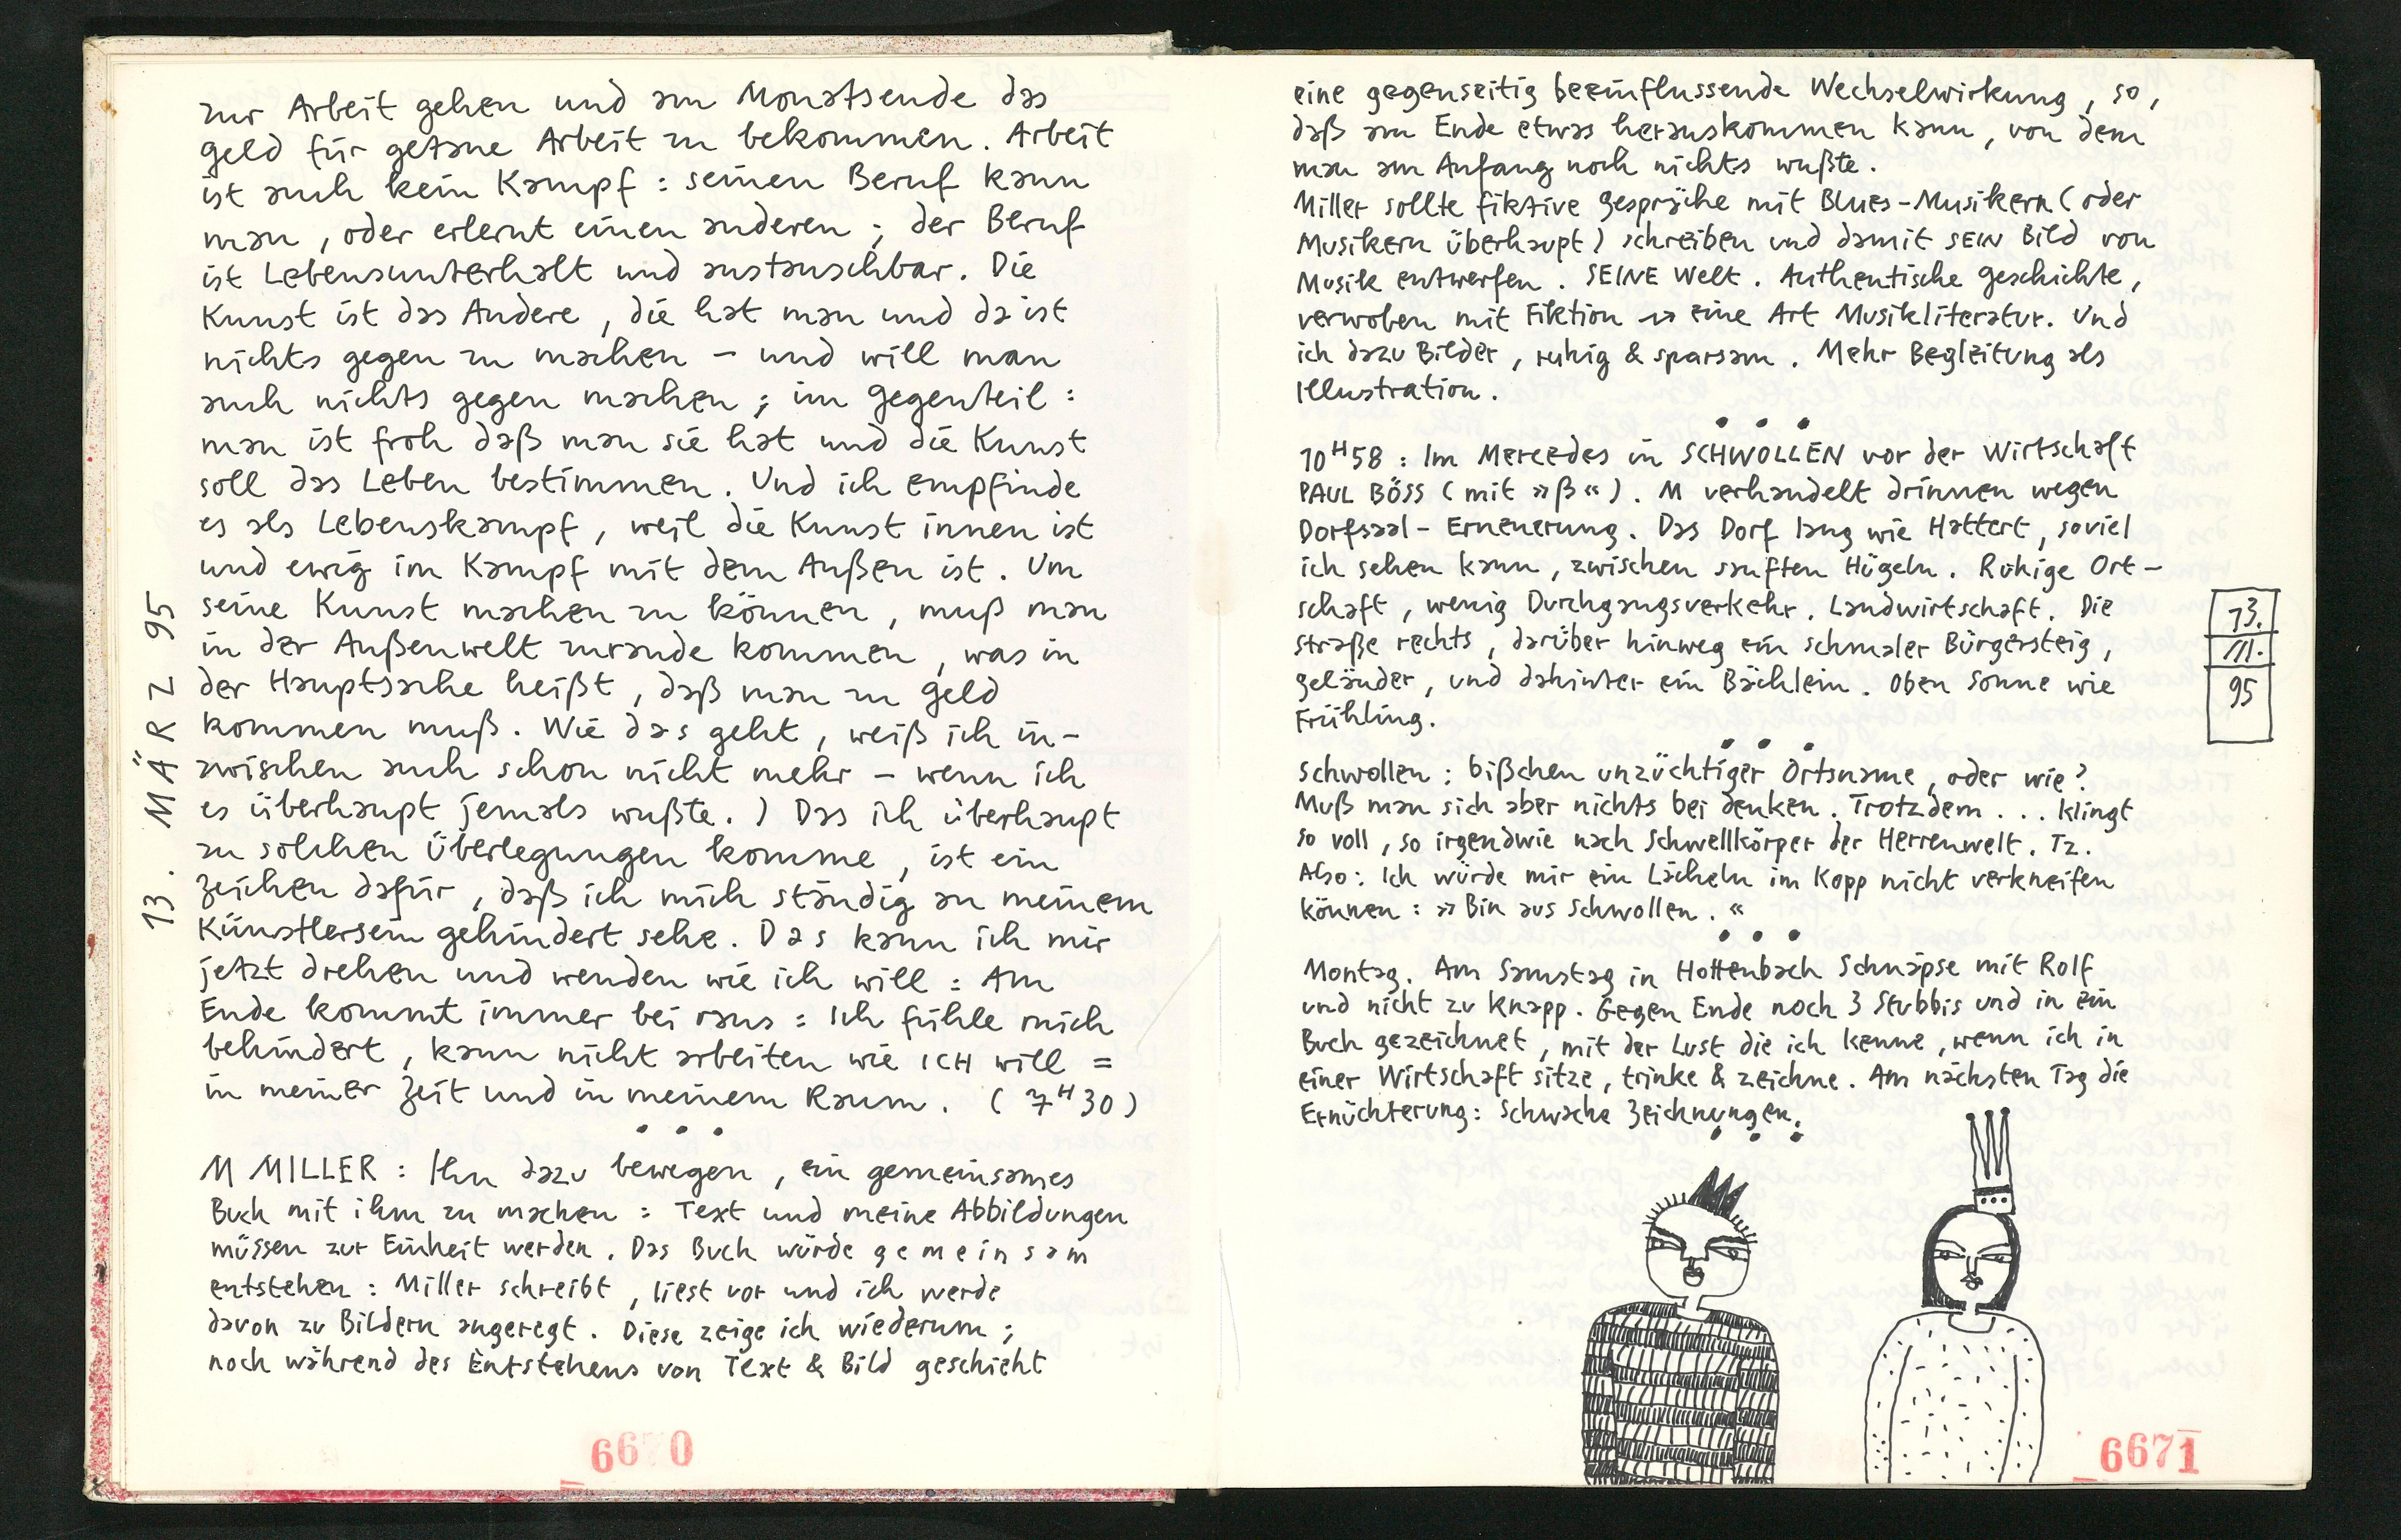 13. MÄRZ 95
zur Arbeit gehen und am Monatsende das
Geld für getane Arbeit zu bekommen. Arbeit
ist auch kein Kampf : seinen Beruf kann
man, oder erlernt einen anderen ; der Beruf
ist Lebensunterhalt und austauschbar. Die
Kunst ist das Andere, die hat man und da ist
nichts gegen zu machen – und will man
auch nichts gegen machen ; im Gegenteil :
man ist froh daß man sie hat und die Kunst
soll das Leben bestimmen. Und ich empfinde
es als Lebenskampf, weil die Kunst innen ist
und ewig im Kampf mit dem Außen ist. Um
seine Kunst machen zu können, muß man
in der Außenwelt zurande kommen, was in
der Hauptsache heißt, daß man zu Geld
kommen muß. Wie das geht, weiß ich in-
zwischen auch schon nicht mehr – wenn ich
es überhaupt jemals wußte. ) Das ich überhaupt
zu solchen Überlegungen komme, ist ein
Zeichen dafür, daß ich mich ständig an meinem
Künstlersein gehindert sehe. Das kann ich mir
jetzt drehen und wenden wie ich will : Am
Ende kommt immer bei raus : Ich fühle mich
behindert, kann nicht arbeiten wie ICH will =
in meiner Zeit und in meinem Raum. ( 7H30 )
• • •
M MILLER : Ihn dazu bewegen, ein gemeinsames
Buch mit ihm zu machen : Text und meine Abbildungen
müssen zur Einheit werden. Das Buch würde gemeinsam
entstehen : Miller schreibt, liest vor und ich werde
davon zu Bildern angeregt. Diese zeige ich wiederum ;
noch während des Entstehens von Text & Bild geschieht
6670
eine gegenseitig beeinflussende Wechselwirkung, so,
daß am Ende etwas herauskommen kann, von dem
man am Anfang noch nichts wußte.
Miller sollte fiktive Gespräche mit Blues-Musikern ( oder
Musikern überhaupt ) schreiben und damit SEIN Bild von
Musik entwerfen. SEINE Welt. Authentische Geschichte,
verwoben mit Fiktion → eine Art Musikliteratur. Und
ich dazu Bilder, ruhig & sparsam. Mehr Begleitung als
Illustration.
• • •
10H58 : Im Mercedes in SCHWOLLEN vor der Wirtschaft
PAUL BÖSS ( mit »ß« ). M verhandelt drinnen wegen
Dorfsaal-Erneuerung. Das Dorf lang wie Hattert, soviel
ich sehen kann, zwischen sanften Hügeln. Ruhige Ort-
schaft, wenig Durchgangsverkehr. Landwirtschaft. Die
Straße rechts, darüber hinweg ein schmaler Bürgersteig,
Geländer, und dahinter ein Bächlein. Oben Sonne wie
Frühling.
13.
III.
95
• • •
Schwollen : bißchen unzüchtiger Ortsname, oder wie?
Muß man sich aber nichts bei denken. Trotzdem . . . klingt
so voll, so irgendwie nach Schwellkörper der Herrenwelt. Tz.
Also : Ich würde mir ein Lächeln im Kopp nicht verkneifen
können : »Bin aus Schwollen.«
• • •
Montag. Am Samstag in Hottenbach Schnäpse mit Rolf
und nicht zu knapp. Gegen Ende noch 3 Stubbis und in ein
Buch gezeichnet, mit der Lust die ich kenne, wenn ich in
einer Wirtschaft sitze, trinke & zeichne. Am nächsten Tag die
Ernüchterung : Schwache Zeichnungen.
• • •
6671